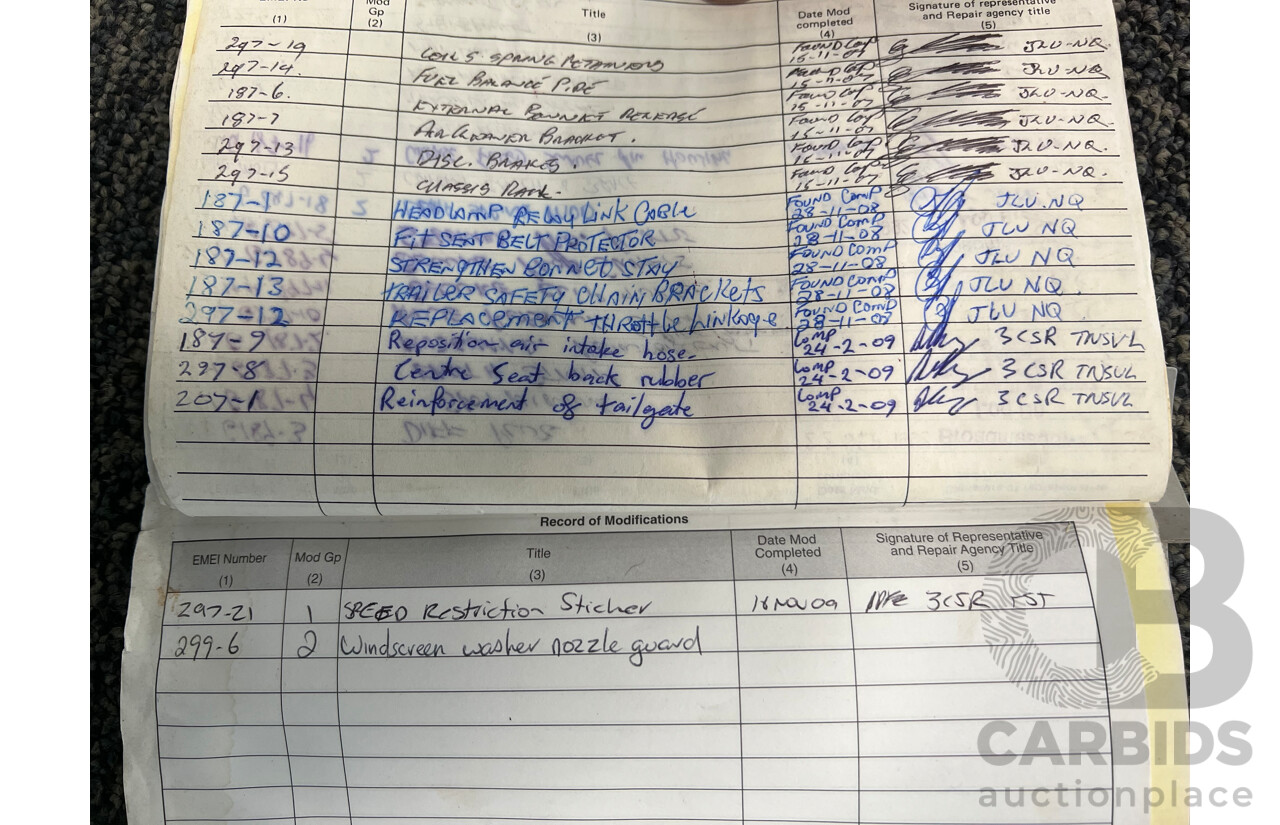 Mod Gp (2) Title (3) Date Mod completed (4) Signature of representative and Repair agency title (5)
(1)
297-19 COIL SPRING RETAINERS FOUND Comp 15-11-07 JLU-NQ
297-14. FUEL BALANCE PIPE Found Comp 15-11-07 JLU-NQ
187-6. EXTERNAL BONNET RELEASE Found Comp 15-11-07 JLU-NQ.
187-7 AIR CLEANER BRACKET. Found Comp 15-11-07 JLU-NQ.
297-13 DISC. BRAKES. Found Comp 15-11-07 JLU-NQ.
297-15 CHASSIS RAIL. Found Comp 15-11-07 JLU-NQ.
187-1 HEADLAMP RELAY LINK CABLE FOUND COMP 28-11-08 JLU.NQ
187-10 FIT SEAT BELT PROTECTOR FOUND COMP 28-11-08 JLU NQ
187-12 STRENGTHEN BONNET STAY FOUND COMP 28-11-08 JLU NQ
187-13 TRAILER SAFETY CHAIN BRACKETS FOUND COMP 28-11-08 JLU NQ.
297-12 REPLACEMENT THROTTLE Linkage. FOUND COMP 28-11-08 JLU NQ
187-9 Reposition air intake hose. COMP 24-2-09 3 CSR TNSVL
297-8 Centre Seat back rubber COMP 24-2-09 3 CSR TNSVL
207-1 Reinforcement of tailgate COMP 24-2-09 3 CSR TNSVL
Record of Modifications
EMEI Number (1) Mod Gp (2) Title (3) Date Mod Completed (4) Signature of Representative and Repair Agency Title (5)
297-21 1 SPEED Restriction Sticker 18 NOV 09 3CSR TST
299-6 2 Windscreen washer nozzle guard
CARBIDS
auctionplace